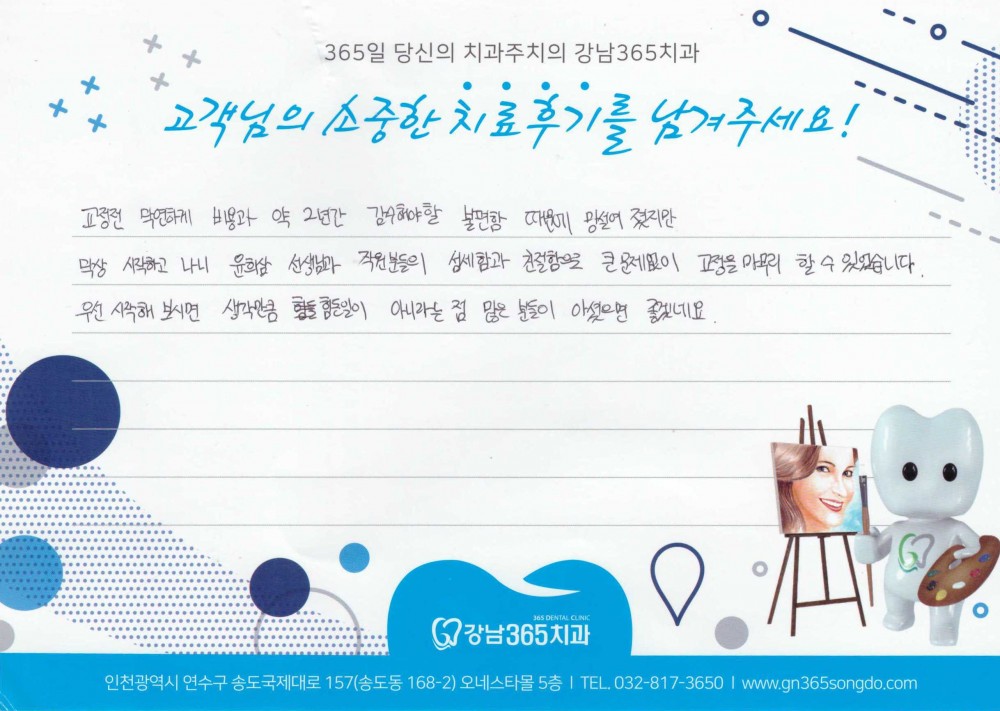 365일 당신의 치과주치의 강남365치과
고객님의 소중한 치료후기를 남겨주세요!
교정전 막연하게 비용과 약 2년간 감수해야할 불편함 때문에 망설여 졌지만
막상 시작하고 나니 윤희상 선생님과 직원분들의 섬세함과 친절함으로 큰 문제없이 교정을 마무리 할 수 있었습니다.
우선 시작해 보시면 생각만큼 힘든일이 아니라는 점 많은 분들이 아셨으면 좋겠네요.
365 DENTAL CLINIC
강남365치과
인천광역시 연수구 송도국제대로 157(송도동 168-2) 오네스타몰 5층 I TEL. 032-817-3650 I www.gn365songdo.com